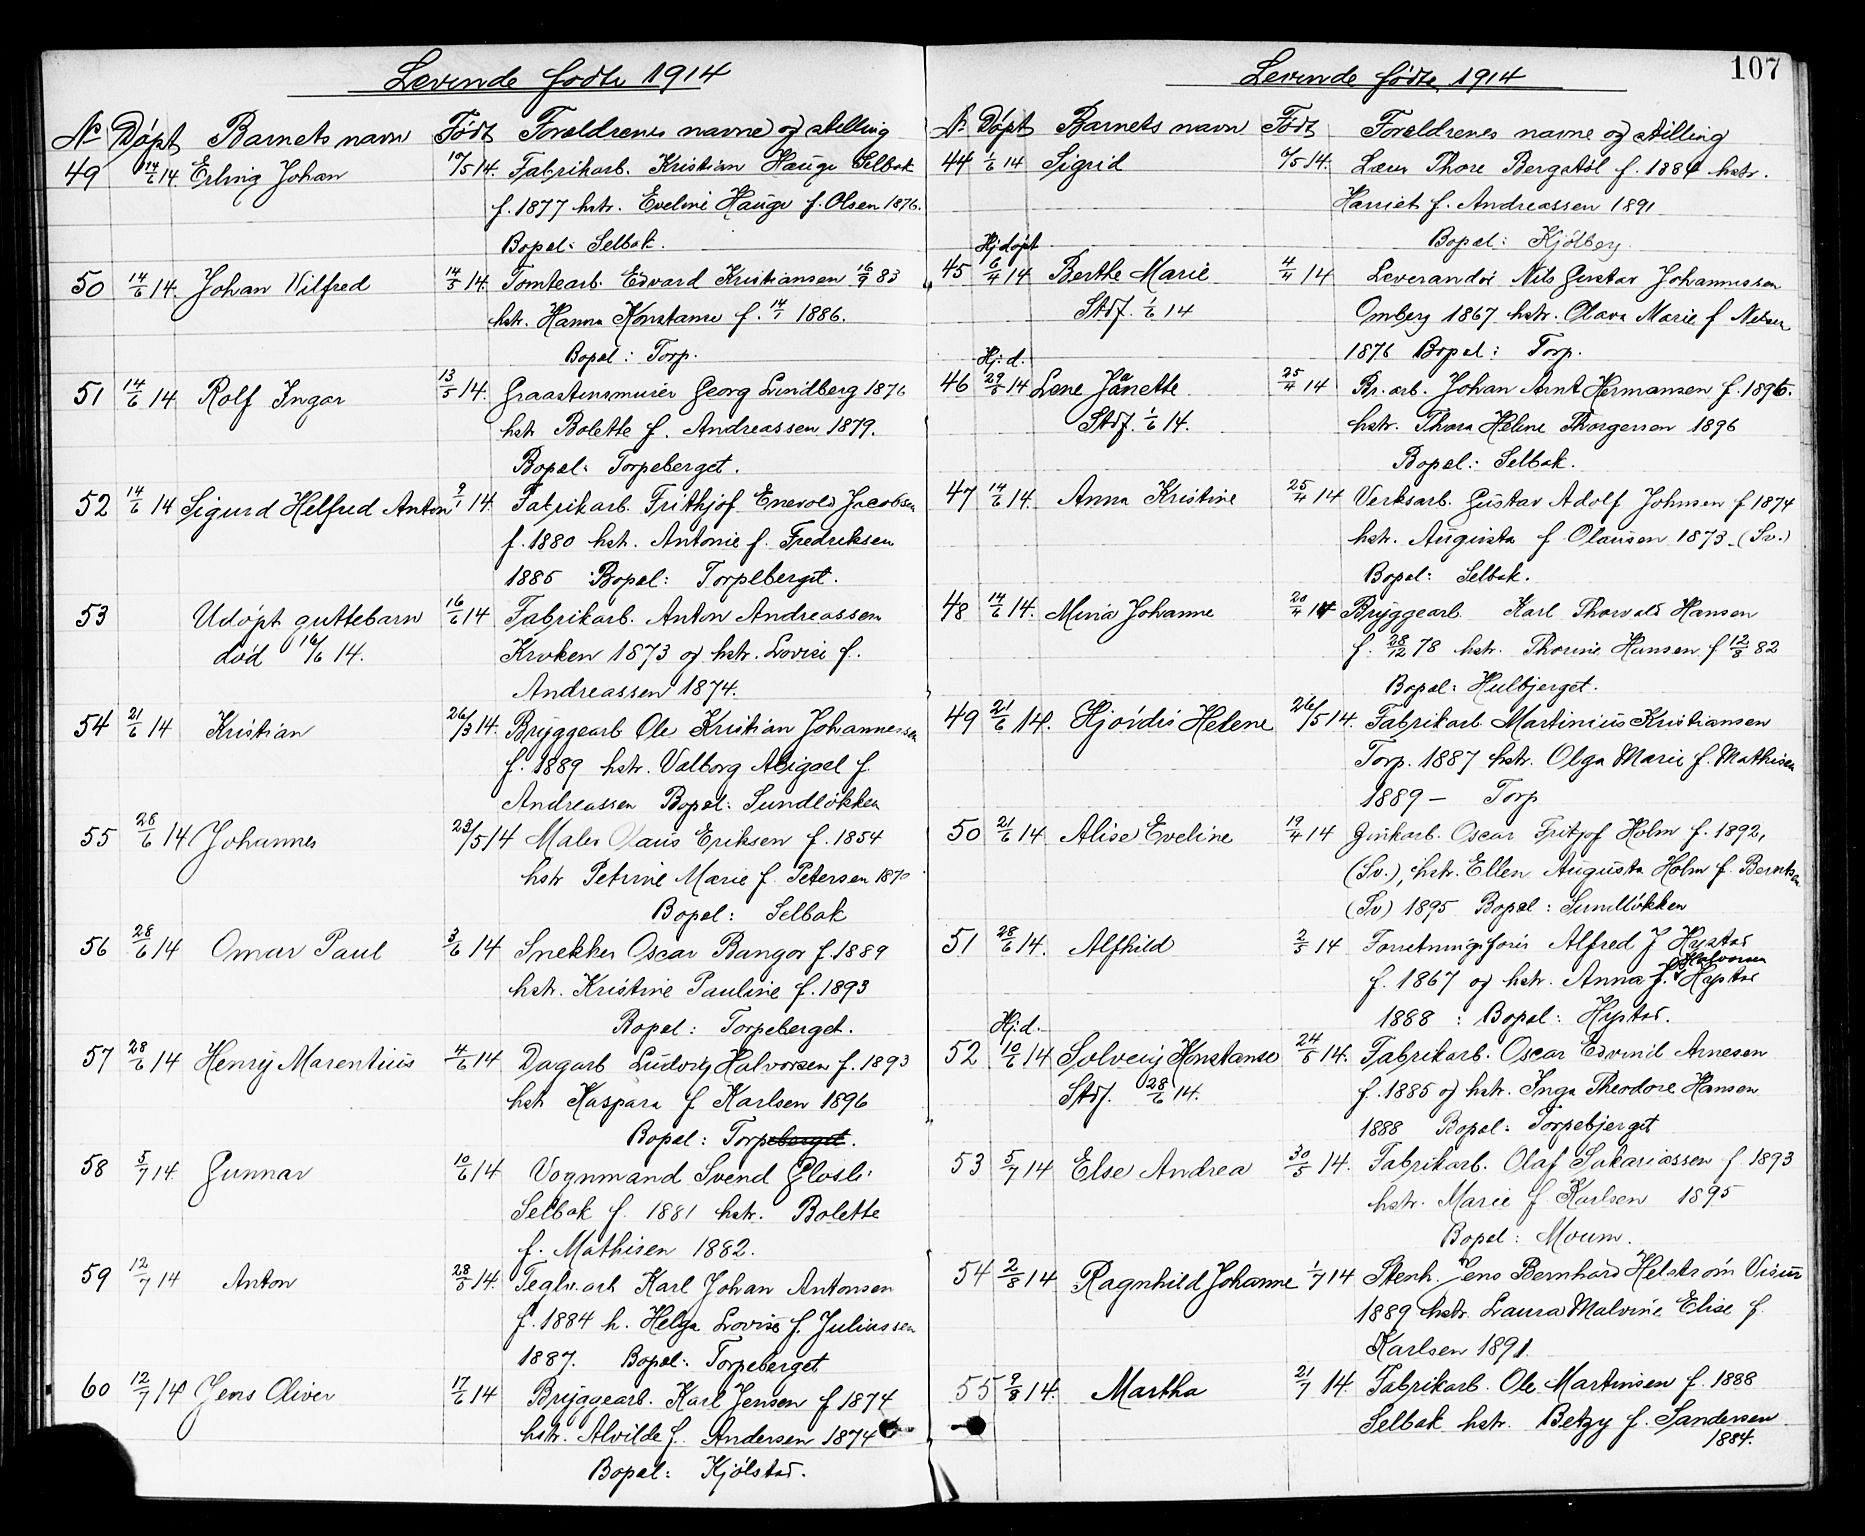 Levende fødte 1914
No Døpt Barnets navn Født Forældrenes navne og stilling
49 14/6 14. Erling Johan 10/5 14. Fabrikarb. Kristian Hauge Selbak
f. 1877 hstr. Eveline Hauge f. Olsen 1876.
Bopæl: Selbak.
50 14/6 14. Johan Vilfred 14/5 14. Tomtearb. Edvard Kristiansen 16/9 83
hstr. Hanna Konstanse f. 14/1 1886.
Bopæl: Torp.
51 14/6 14 Rolf Ingar 13/5 14. Graastensmurer Georg Lundberg 1876
hstr Bolette f. Andreassen 1879.
Bopæl: Torpeberget.
52 14/6 14 Sigurd Helfred Anton 9/1 14. Fabrikarb. Frithjof Enevold Jacobsen
f. 1880 hstr. Antonie f. Fredriksen
1885 Bopæl: Torpeberget.
53 Udøpt guttebarn 16/6 14 Fabrikarb. Anton Andreassen
død 16/6 14. Kroken 1873 og hstr. Lovise f.
Andreassen 1874.
54 21/6 14 Kristian 26/3 14. Bryggearb Ole Kristian Johannessen
f. 1889 hstr. Valborg Abigael f.
Andreassen Bopæl: Sundløkken
55 28/6 14 Johannes 23/5 14 Maler Olaus Eriksen f. 1854
hstr Petrine Marie f. Petersen 1870
Bopæl: Selbak
56 28/6 14 Omar Paul 3/6 14 Snekker Oscar Bangor f. 1889
hstr. Kristine Pauline f. 1893
Bopæl: Torpeberget.
57 28/6 14 Henry Marentius 4/6 14 Dagarb Ludvig Halvorsen f. 1893
hstr Kaspara f Karlsen 1896
Bopæl: Torpeberget.
58 5/7 14 Gunnar 10/6 14 Vognmand Svend Glosli
Selbak f. 1881 hstr. Bolette
f. Mathisen 1882.
59 12/7 14 Anton 28/5 14. Teglv.arb Karl Johan Antonsen
f. 1884 h. Helga Lovise f. Juliussen
1887. Bopæl: Torpeberget
60 12/7 14 Jens Oliver 17/6 14 Bryggearb. Karl Jensen f 1874
hstr. Alvilde f. Andersen 1874
Bopæl: Kjølstad.
107
Levende fødte 1914
No Døpt Barnets navn Født Forældrenes navne og stilling
44 1/6 14 Sigrid 6/5 14. Lærer Thore Bergstøl f. 1884 hstr.
Harriet f. Andreassen 1891
Bopæl: Kjølberg.
Hj.døpt
45 6/4 14 Berthe Marie 4/4 14 Leverandør Nils Gustav Johannessen
Stdf. 1/6 14 Omberg 1867 hstr. Olava Marie f Nelsen
1876 Bopæl: Torp.
Hj.d.
46 29/5 14 Lene Janette 25/4 14 Br. arb. Johan Arnt Hermansen f. 1896.
Stdf. 1/6 14. hstr. Thora Heline Thorgersen 1896
Bopæl: Selbak.
47 14/6 14. Anna Kristine 25/4 14 Verksarb. Gustav Adolf Johnsen f 1874
hstr. Augusta f Olausen 1873. (Sv.)
Bopæl: Selbak.
48 14/6 14. Mina Johanne 20/4 14 Bryggearb. Karl Thorvald Hansen
f. 28/12 78 hstr. Thorine Hansen f 12/8 82
Bopæl: Hulbjerget.
49 21/6 14. Hjørdis Helene 26/5 14. Fabrikarb. Martinius Kristiansen
Torp. 1887 hstr. Olga Marie f. Mathisen
1889 – Torp
50 21/6 14 Alise Eveline 19/4 14 Grukarb. Oscar Fritjof Holm f. 1892,
(Sv.), hstr. Ellen Augusta Holm f. Berntsen
(Sv) 1895 Bopæl: Sundløkken
51 28/6 14. Alfhild 2/5 14 Forretningsfører Alfred J Hystad
Halvorsen
f. 1867 og hstr. Anna f. Hystad
1888 : Bopæl: Hystad.
Hj.d.
52 10/6 14 Solveig Konstanse 24/5 14. Fabrikarb. Oscar Edvind Arnesen
Stdf. 28/6 14. f. 1885 og hstr. Inga Theodore Hansen
1888 Bopæl: Torpebjerget
53 5/7 14 Else Andrea 30/5 14. Fabrikarb. Olaf Sakariassen f. 1893
hstr. Marie f. Karlsen 1895
Bopæl: Moum.
54 2/8 14 Ragnhild Johanne 1/7 14 Stenh. Jens Bernhard Helstrøm Visur
1889 hstr. Laura Malvine Elise f.
Karlsen 1891.
55 9/8 14. Martha 21/7 14. Fabrikarb. Ole Martinsen f. 1888
Selbak hstr. Betzy f. Sandersen
1884.